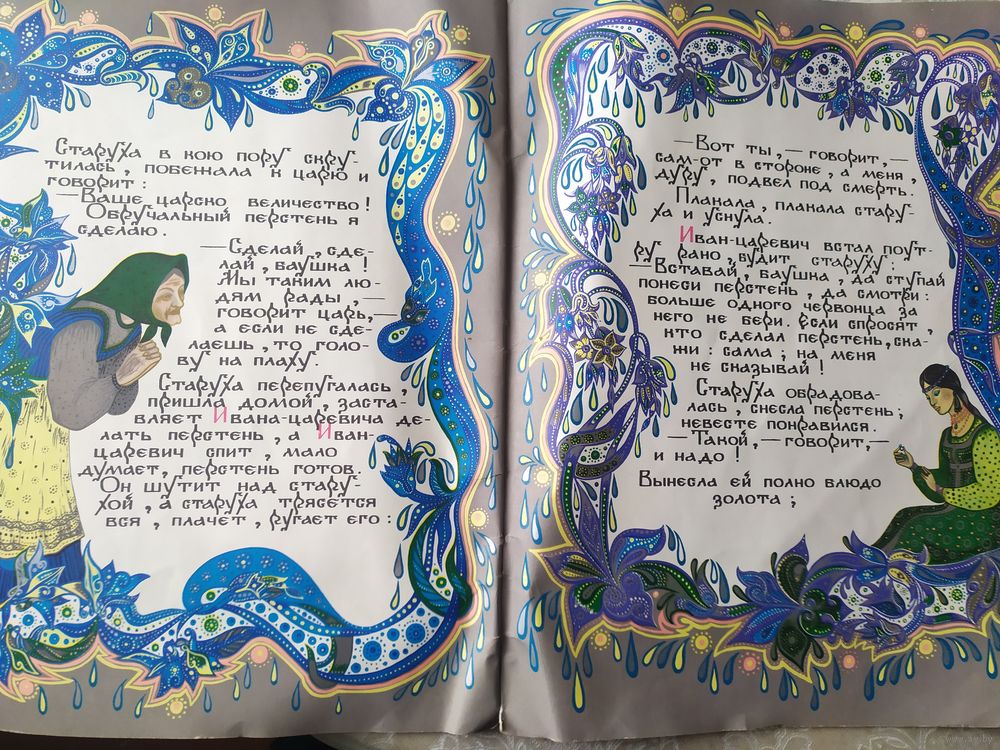 Старуха в кою пору скру-
тилась, побежала к царю и
говорит:
— Ваше царско величество!
Обручальный перстень я
сделаю.
— Сделай, сде-
лай, баушка!
Мы таким лю-
дям рады, —
говорит царь, —
а если не сде-
лаешь, то голо-
ву на плаху.
Старуха перепугалась,
пришла домой, заста-
вляет Ивана-царевича де-
лать перстень, а Иван-
царевич спит, мало
думает, перстень готов.
Он шутит над стару-
хой, а старуха трясётся
вся, плачет, ругает его:
— Вот ты, — говорит, —
сам-от в стороне, а меня,
дуру, подвел под смерть.
Плакала, плакала стару-
ха и уснула.
Иван-царевич встал поут-
ру рано, будит старуху:
— Вставай, баушка, да ступай
понеси перстень, да смотри:
больше одного червонца за
него не бери. Если спросят,
кто сделал перстень, ска-
жи: сама; на меня
не сказывай!
Старуха обрадова-
лась, снесла перстень;
невесте понравился.
— Такой, — говорит, —
и надо!
Вынесла ей полно блюдо
золота;